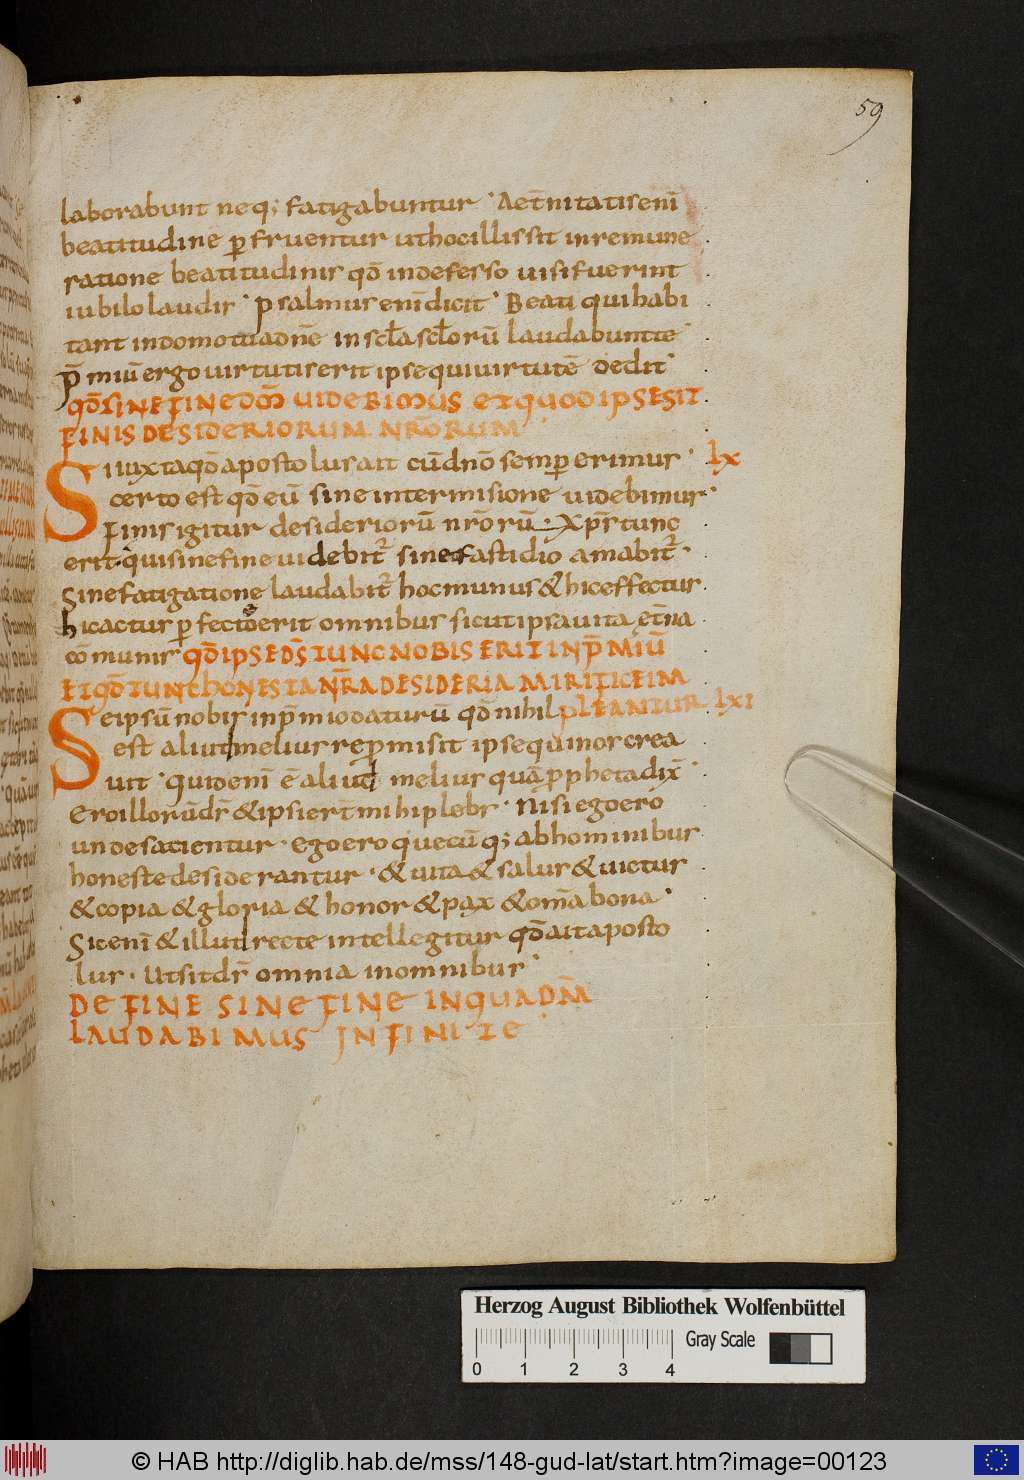 59
laborabunt neq; fatigabuntur · Aet̄nitatis enī
beatitudine ꝑfruentur ut hoc illis sit in remune
ratione beatitudinis qđ indefesso uisi fuerint
iubilo laudis · psalmus enī dicit · Beati qui habi
tant in domo tua dn̄e in scl̄a scl̄orū laudabunt te ·
p̄miū ergo uirtutis erit ipse qui uirtutē dedit ·
qđ sine fine dm̄ uidebimus et quod ipse sit
finis desideriorum nr̄orum
Si iuxta qđ apostolus ait cū dn̄o semꝑ erimus · lx
certo est qđ eū sine intermisione uidebimus ·
Finis igitur desideriorū nr̄orū · Xp̄s tunc
erit · qui sine fine uidebit̄ sine fastidio amabit̄ ·
Sine fatigatione laudabit̄ hoc munus & hic effectus
hic actus ꝑfecto erit omnibus sicut ipsa uita et̄na
cōmunis qđ ipse ds̄ tunc nobis erit in p̄miū
et qđ tunc honesta nr̄a desideria mirificeim
Se ipsū nobis in p̄mio daturū qđ nihil pleantur lxi
est aliud melius repmisit ipse qui nos crea
uit · Quid enī ē aliud melius quā ꝓpheta dix̄ ·
Ero illorū ds̄ & ipsi er̄t mihi plebs · Nisi ego ero
unde satientur · ego ero quecūq; ab hominibus
honeste desiderantur · & uita & salus & uictus
& copia & gloria & honor & pax & om̄a bona ·
Sic enī & illud recte intellegitur qđ ait aposto
lus · Ut sit ds̄ omnia in omnibus ·
De fine sine fine in qua dm̄
laudabimus infinite
Herzog August Bibliothek Wolfenbüttel
Gray Scale
0 1 2 3 4
© HAB http://diglib.hab.de/mss/148-gud-lat/start.htm?image=00123